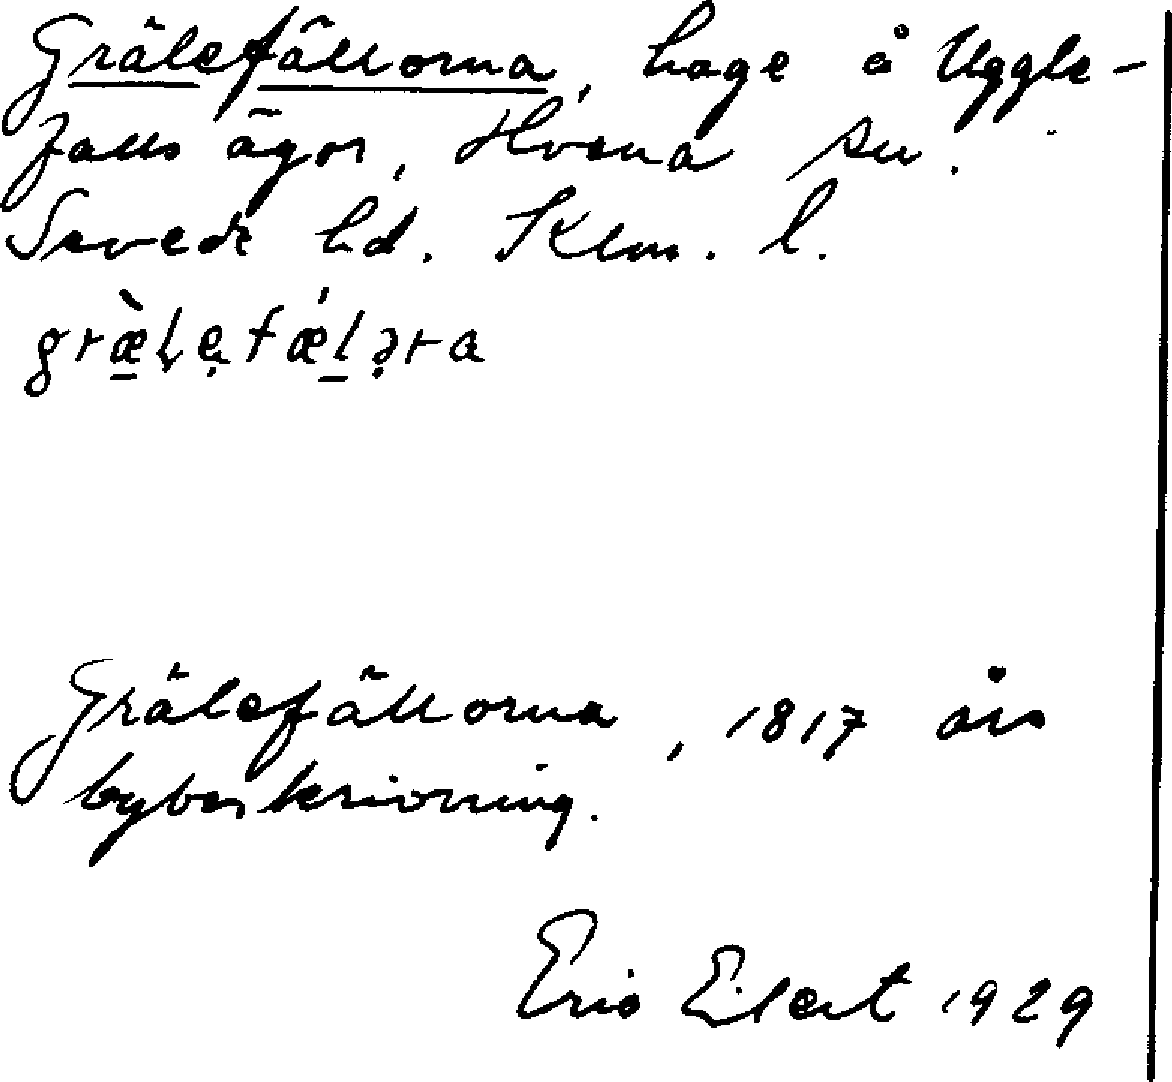 Grälefällorna, hage å Uggle-
falls ägor, Hvena sn.
Sevede hd. Klm. l.
græ̀lefǽləra
Grälefällorna, 1817 års
bybeskrivning.
Eric Eilert 1929